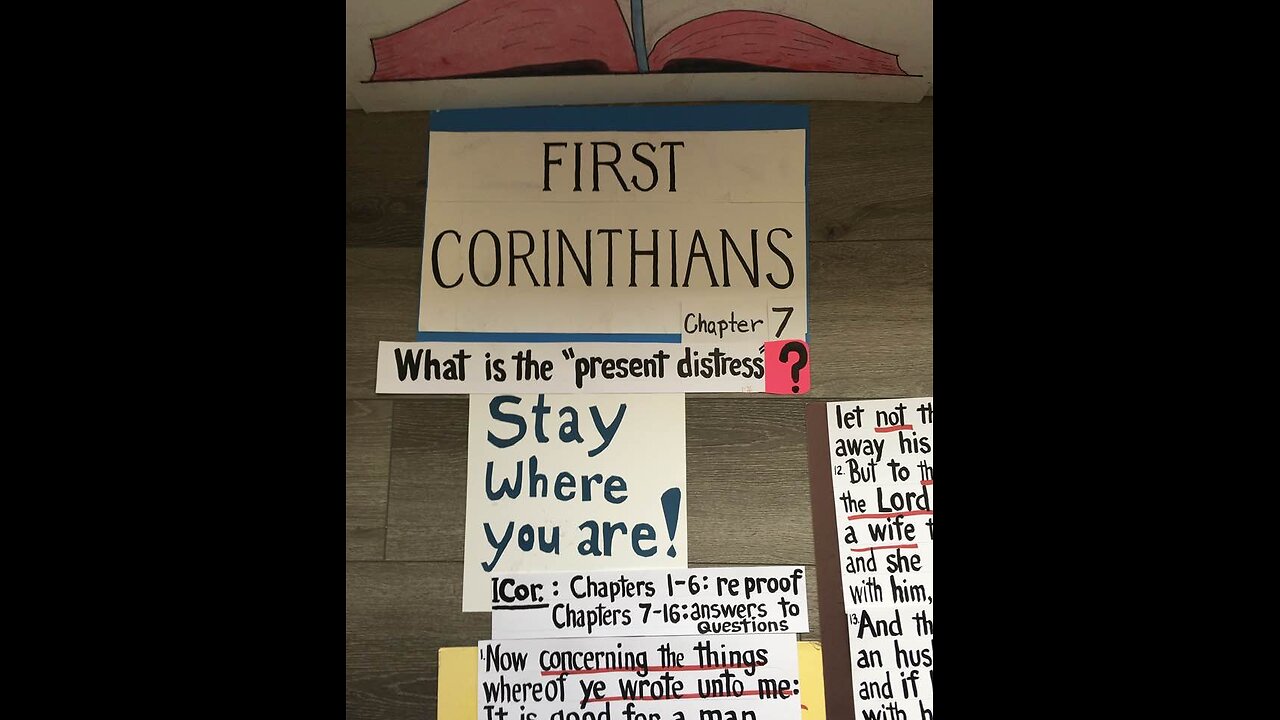 FIRST
CORINTHIANS
Chapter 7
What is the "present distress" ?
Stay
Where
you are!
I Cor. : Chapters 1-6: reproof
Chapters 7-16: answers to
Questions
1. Now concerning the things
whereof ye wrote unto me:
It is good for a man
let not
away his
12. But to
the Lord
a wife
and she
with him,
13. And
an
and if
with